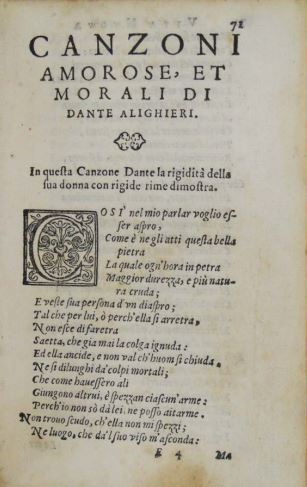 71
CANZONI
AMOROSE, ET
MORALI DI
DANTE ALIGHIERI.
In queſta Canzone Dante la rigidità della
ſua donna con rigide rime dimoſtra.
COSI' nel mio parlar voglio eſ-
ſer aſpro,
Come è ne gli atti queſta bella
pietra
La quale ogn'hora in petra
Maggior durezza, e più natu-
ra cruda;
E veſte ſua perſona d'vn diaſpro;
Tal che per lui, ò perch'ella ſi arretra,
Non eſce di faretra
Saetta, che gia mai la colga ignuda:
Ed ella ancide, e non val ch'huom ſi chiuda,
Ne ſi dilunghi da'colpi mortali;
Che come haueſſero ali
Giungono altrui, è ſpezzan ciaſcun'arme:
Perch'io non sò da lei. ne poſſo aitarme.
Non trouo ſcudo, ch'ella non mi ſpezzi;
Ne luogo, che dal ſuo viſo m'aſconda:
E 4 Ma